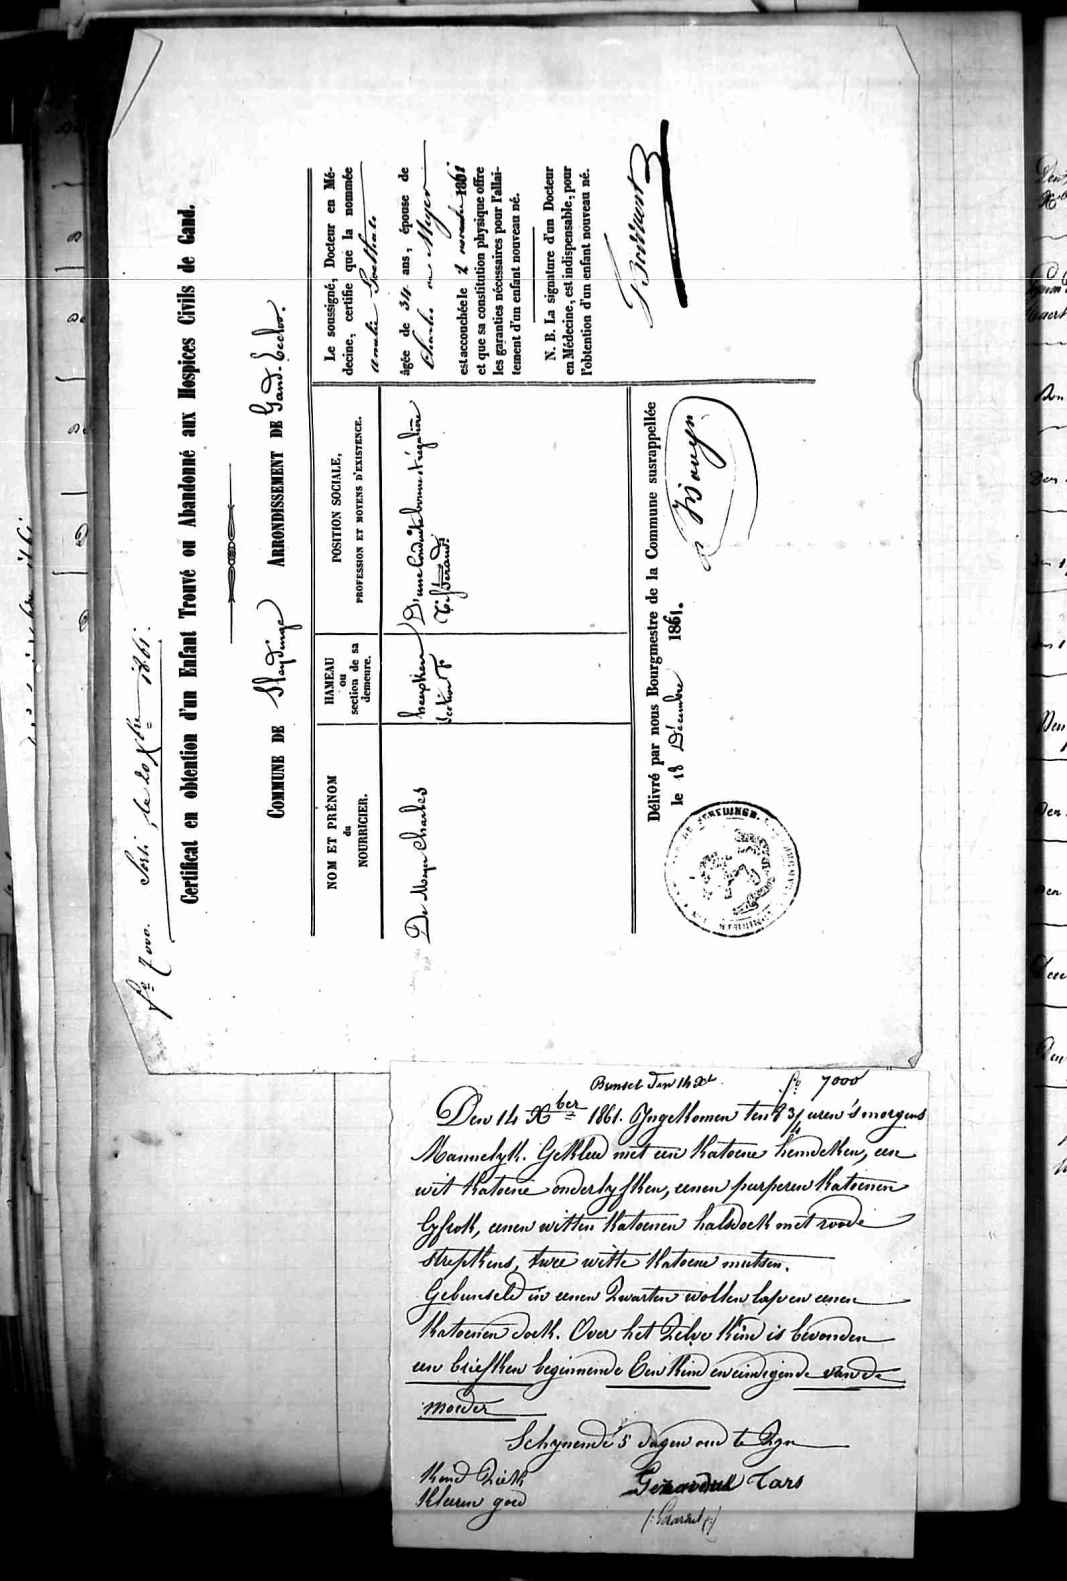 fo 7000. Sorti, le 20 Xbre 1861.
Certificat en obtention d'un Enfant Trouvé ou Abandonné aux Hospices Civils de Gand.
COMMUNE DE Sleydinge ARRONDISSEMENT DE Gand-Eecloo.
NOM ET PRÉNOM
du
NOURRICIER.
HAMEAU
ou
section de sa
demeure.
POSITION SOCIALE,
PROFESSION ET MOYENS D'EXISTENCE.
De Meyer Charles
section F
D'une conduite bonne & régulière
Tisserand
Le soussigné, Docteur en Mé-
decine, certifie que la nommée
Amelie Goethals
âgée de 34 ans, épouse de
Charles De Meyer
est accouchée le 2 novembre 1861
et que sa constitution physique offre
les garanties nécessaires pour l'allai-
tement d'un enfant nouveau né.
N. B. La signature d'un Docteur
en Médecine, est indispensable, pour
l'obtention d'un enfant nouveau né.
Délivré par nous Bourgmestre de la Commune susrappellée
le 18 Décembre 1861.
Bunsel den 14 Xbr fo 7000
Den 14 Xber 1861. Yngekomen ten 8 3/4 uren 's morgens
Mannelyk. Gekleed met een katoene hemdeken, een
wit katoene onderlyfken, eenen purperen katoenen
lyfrok, eenen witten katoenen halsdoek met roode
strepkens, twee witte katoene mutsen.
Gebunseld in eenen zwarten wollen lap en eenen
katoenen doek. Over het zelve kind is bevonden
een briefken beginnende Een kind en eindigende van de
moeder
Schynende 5 dagen oud te zyn
Kind ziek
Kleeren goed
Gerardus Cars
(Gerardus)